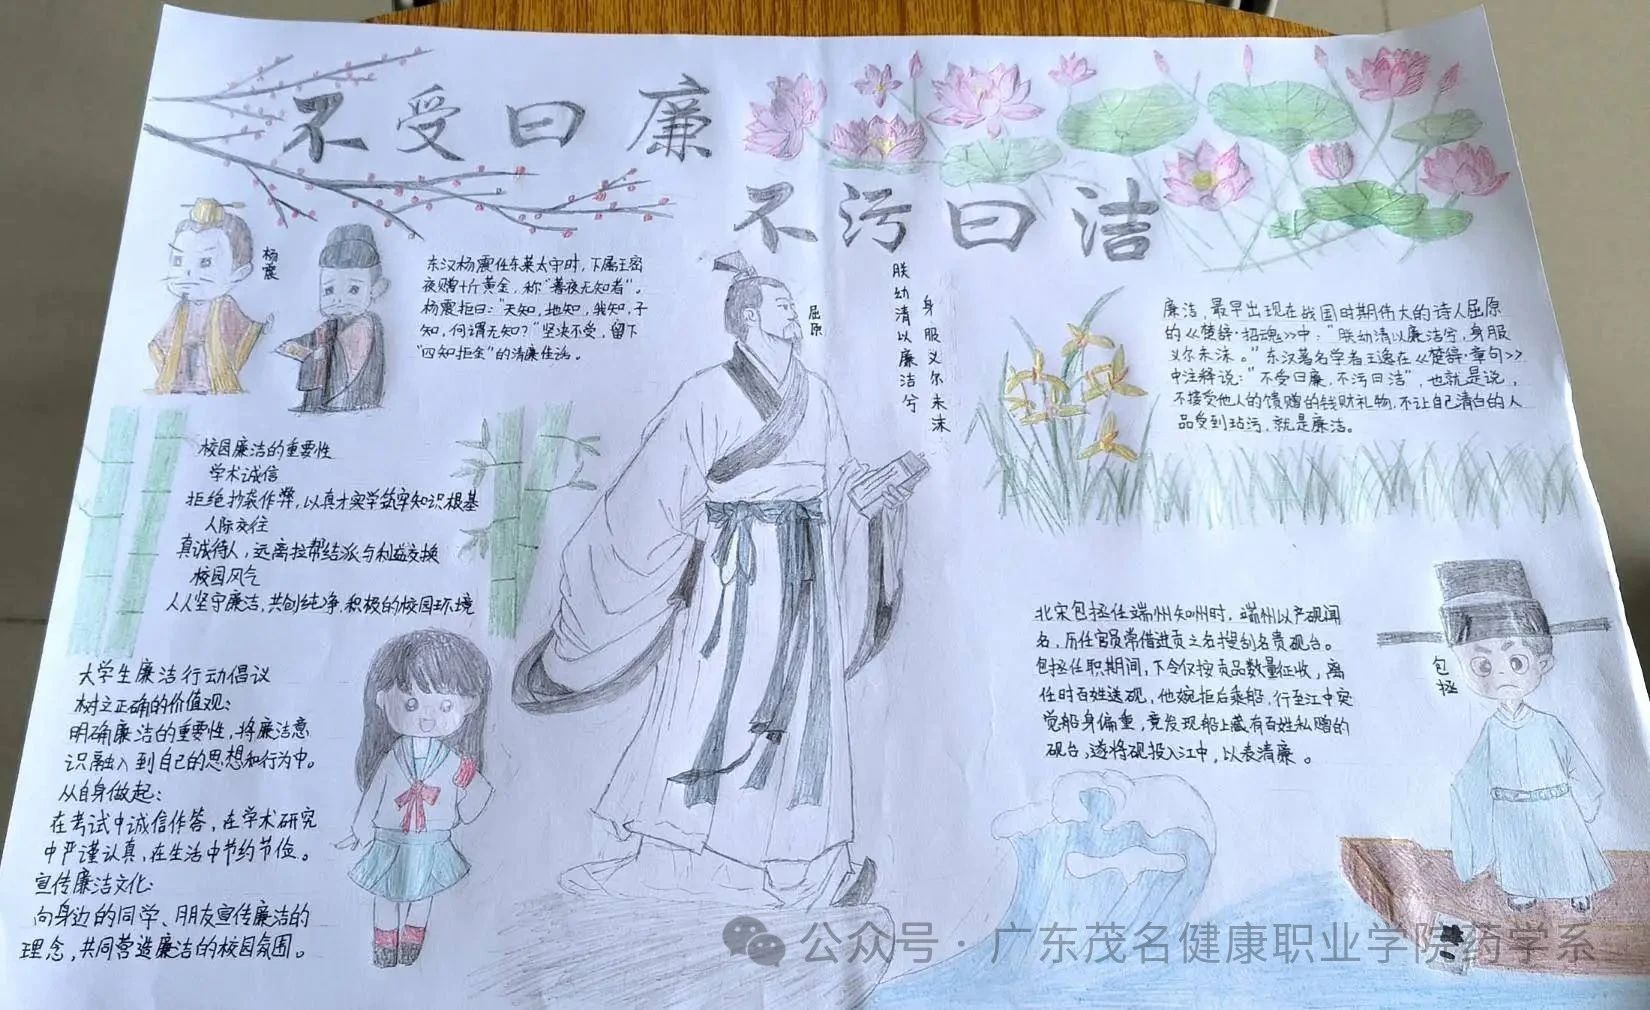 不受曰廉
不污曰洁
杨震
东汉杨震任东莱太守时，下属王密
夜赠十斤黄金，称“暮夜无知者”。
杨震拒曰：“天知，地知，我知，子
知，何谓无知？”坚决不受，留下
“四知拒金”的清廉佳话。
屈原
朕幼清以廉洁兮
身服义尔未沫
廉洁，最早出现在战国时期伟大的诗人屈原
的《楚辞·招魂》中：“朕幼清以廉洁兮，身服
义尔未沫。”东汉著名学者王逸在《楚辞·章句》
中注释说：“不受曰廉，不污曰洁”，也就是说，
不接受他人的馈赠的钱财礼物，不让自己清白的人
品受到玷污，就是廉洁。
校园廉洁的重要性
学术诚信
拒绝抄袭作弊，以真才实学筑牢知识根基
人际交往
真诚待人，远离拉帮结派与利益交换
校园风气
人人坚守廉洁，共创纯净、积极的校园环境
大学生廉洁行动倡议
树立正确的价值观：
明确廉洁的重要性，将廉洁意
识融入到自己的思想和行为中。
从自身做起：
在考试中诚信作答，在学术研究
中严谨认真，在生活中节约节俭。
宣传廉洁文化：
向身边的同学、朋友宣传廉洁的
理念，共同营造廉洁的校园氛围。
北宋包拯任端州知州时，端州以产砚闻
名，历任官员常借进贡之名搜刮名贵砚台。
包拯任职期间，下令仅按贡品数量征收，离
任时百姓送砚，他婉拒后乘船，行至江中突
觉船身偏重，竟发现船上藏有百姓私赠的
砚台，遂将砚投入江中，以表清廉。
包拯
公众号·广东茂名健康职业学院药学系